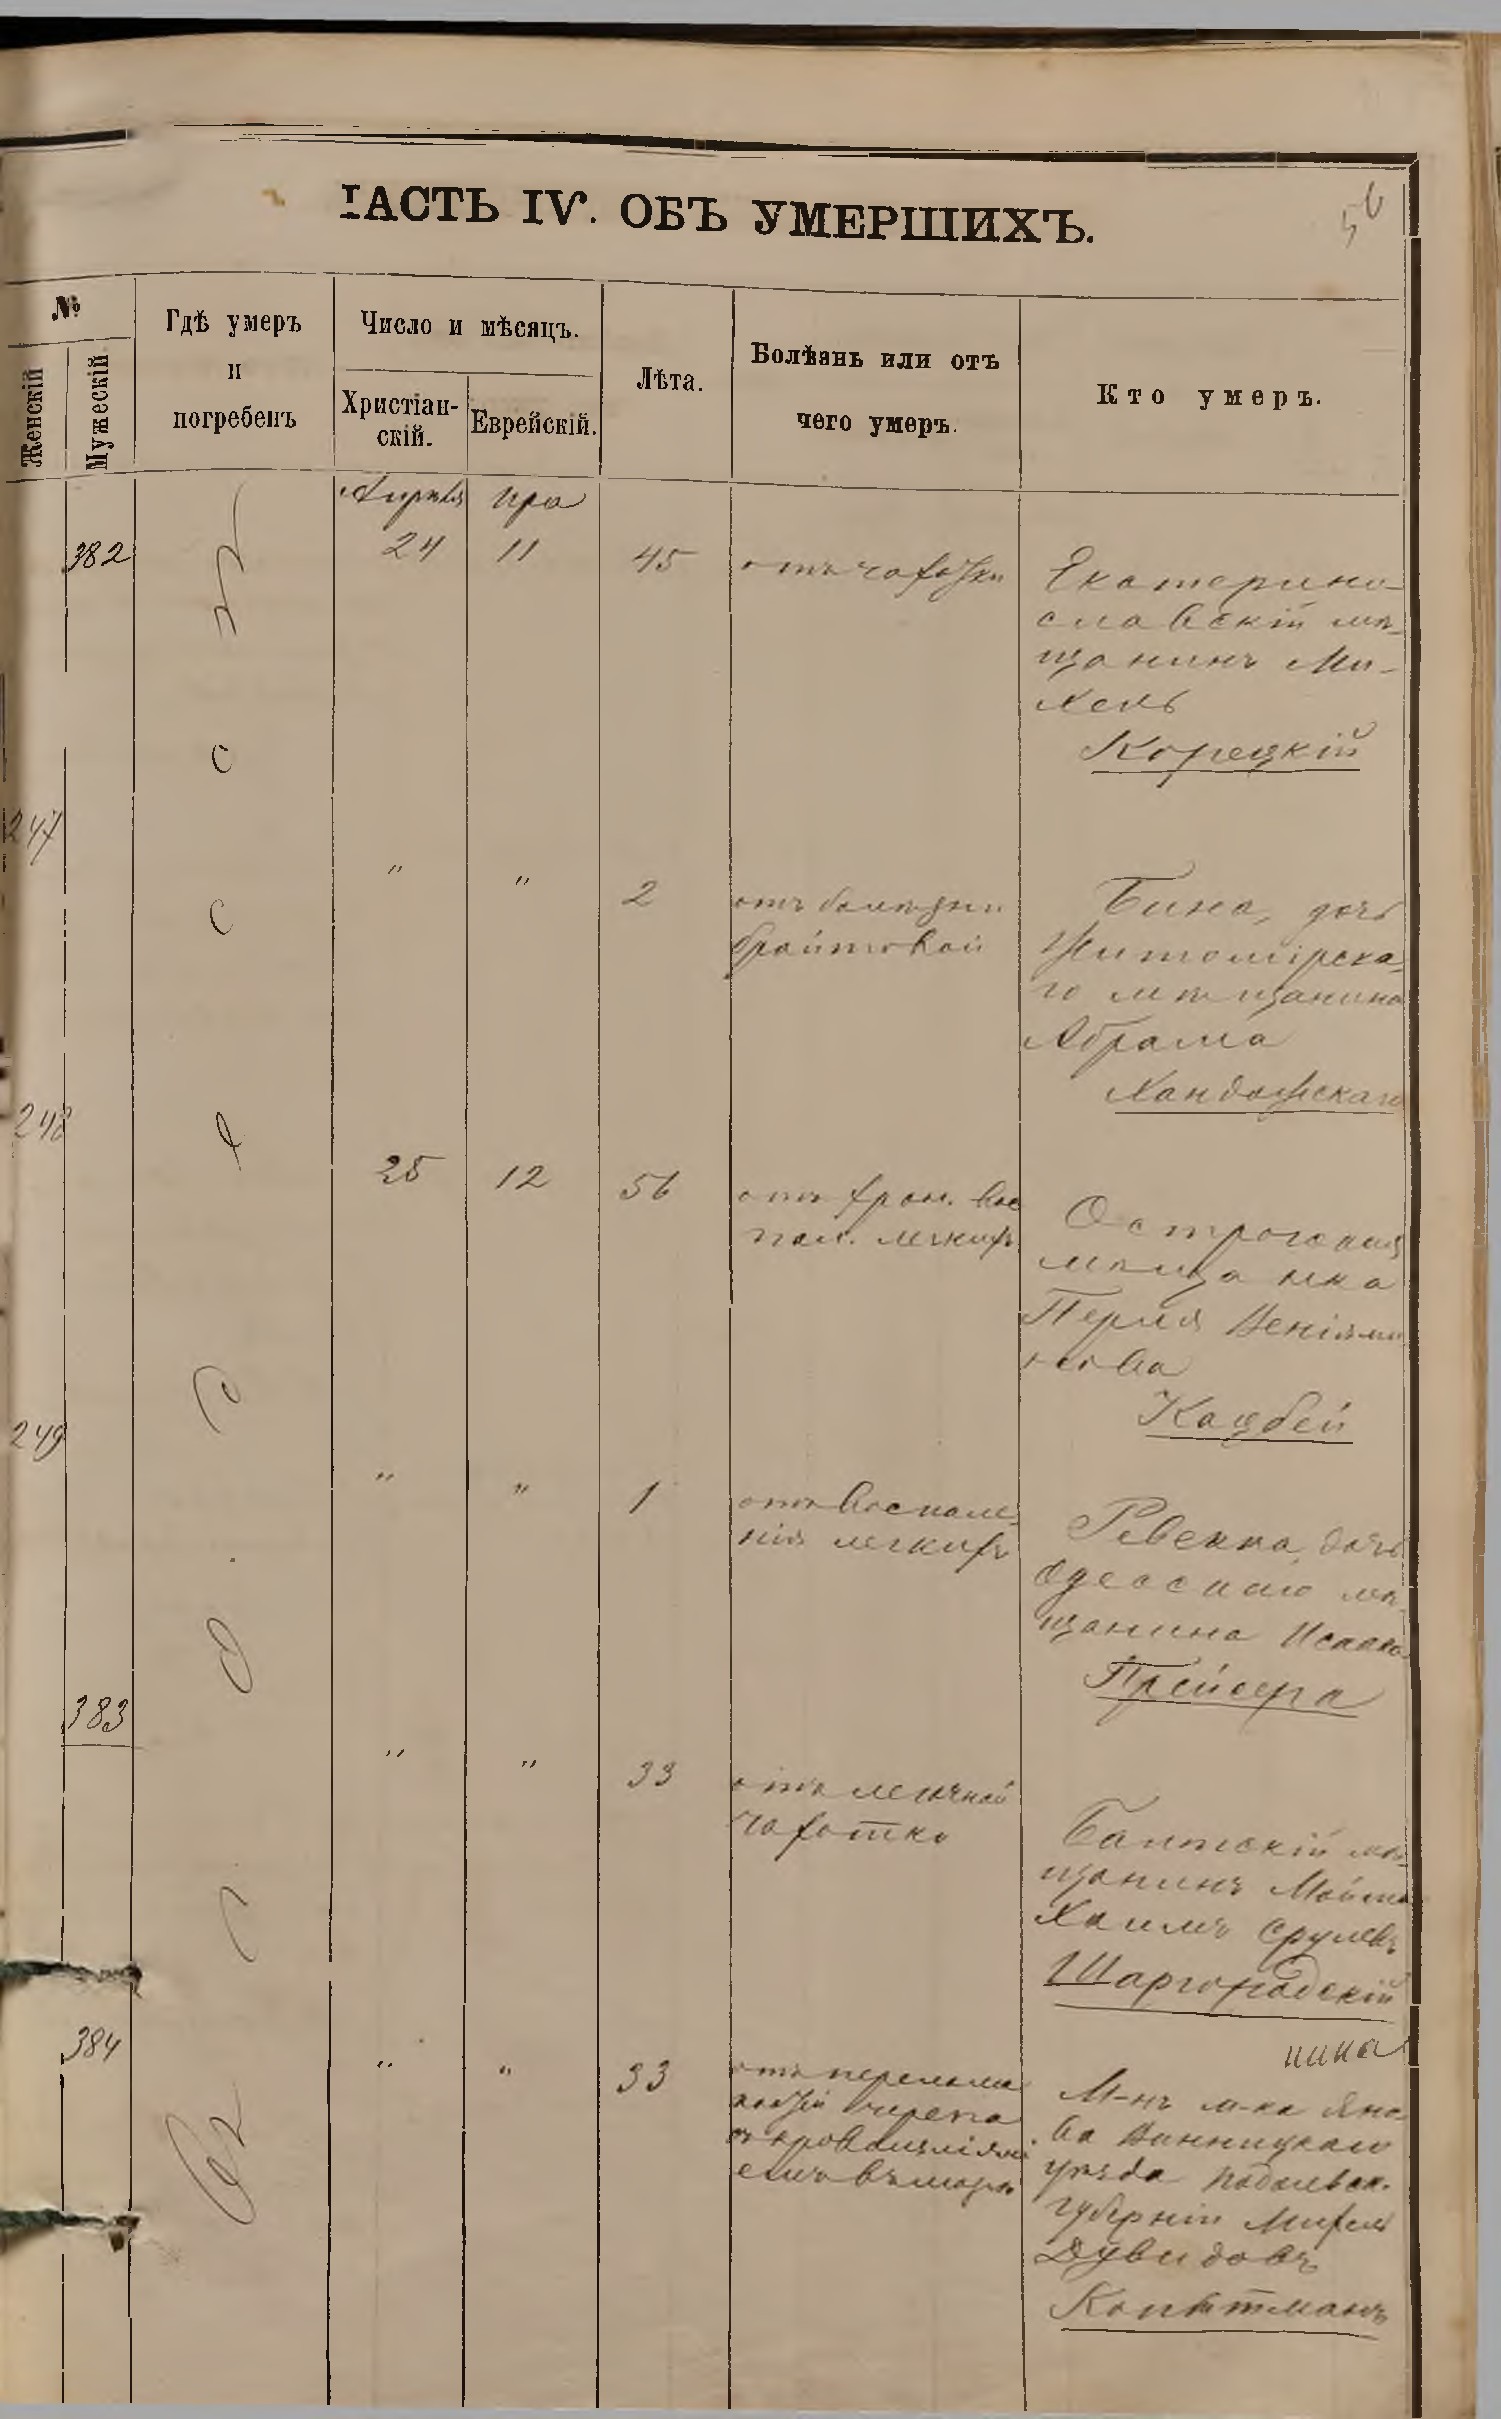 ЧАСТЬ IV. ОБЪ УМЕРШИХЪ.
56
№
Женскій
Мужескій
Гдѣ умеръ
и
погребенъ
Число и мѣсяцъ.
Христіан-
скій.
Еврейскій.
Лѣта.
Болѣзнь или отъ
чего умеръ.
Кто умеръ.
Апрѣля
Ира
382
24
11
45
отъ чахотки
Екатерино-
славскій мѣ-
щанинъ Ми-
хель
Корецкій
247
"
"
2
отъ болѣзни
брайтовой
Бина, дочь
Житомірска-
го мѣщанина
Абрама
Хандожскаго
248
25
12
56
отъ хрон. вос
пал. легкихъ
Острогская
мѣщанка
Перля Веніами
нова
Кацбей
249
"
"
1
отъ воспале-
нія легкихъ
Ревекка, дочь
Одесскаго мѣ-
щанина Исаака
Прейсера
383
"
"
33
отъ легочной
чахотки
Балтскій мѣ-
щанинъ Мойше
Хаимъ Срулевъ
Шаргородскій
384
"
"
33
отъ перелома
костей черепа
съ кровоизліяні
емъ въ мозгъ
М-нъ м-ка Яно-
ва Винницкаго
уѣзда Подольск.
губерніи Михель
Дувидовъ
Одесса